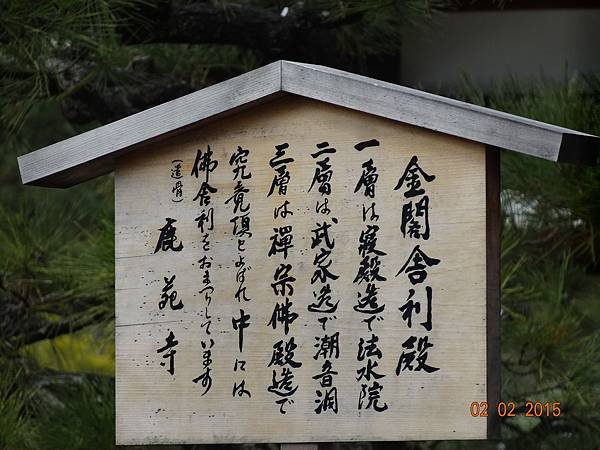 金閣舎利殿
一層は寝殿造で法水院
二層は武家造で潮音洞
三層は禪宗佛殿造で
究竟頂とよばれ中には
佛舎利をおまつりしています
(遺骨)
鹿苑寺
02 02 2015